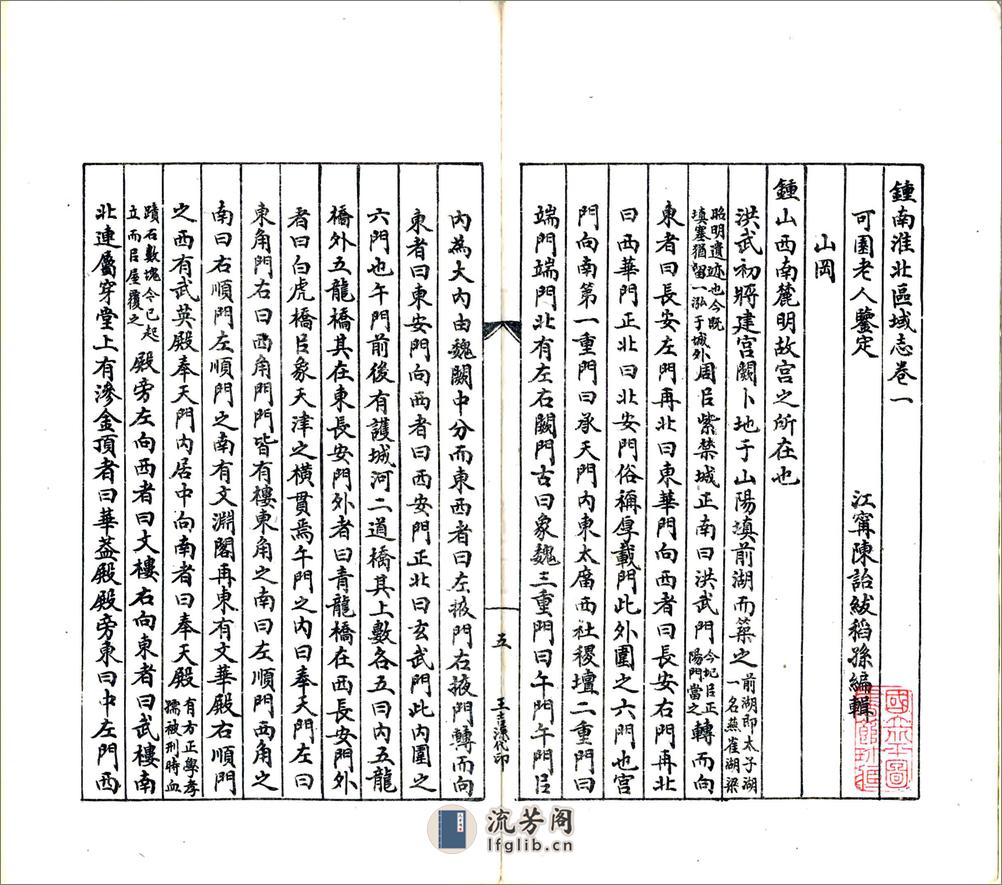 鍾南淮北區域志卷一
可園老人鑒定　江寧陳詒紱稻孫編輯
山岡
鍾山西南麓明故宮之所在也
洪武初將建宮闕卜地于山陽填前湖而築之前湖即太子湖一名燕雀湖梁
昭明遺跡也今既填塞猶留一泓于城外周㠯紫禁城正南曰洪武門今圮㠯正陽門當之轉而向
東者曰長安左門再北曰東華門向西者曰長安右門再北
曰西華門正北曰北安門俗稱厚載門此外圍之六門也宮
門向南第一重門曰承天門內東太廟西社稷壇二重門曰
端門端門北有左右闕門古曰象魏三重門曰午門午門㠯
內為大內由魏闕中分而東西者曰左掖門右掖門轉而向
東者曰東安門向西者曰西安門正北曰玄武門此內圍之
六門也午門前後有護城河二道橋其上數各五曰內五龍
橋外五龍橋其在東長安門外者曰青龍橋在西長安門外
者曰白虎橋㠯象天津之橫貫焉午門之內曰奉天門左曰
東角門右曰西角門門皆有樓東角之南曰左順門西角之
南曰右順門左順門之南有文淵閣再東有文華殿右順門
之西有武英殿奉天門內居中向南者曰奉天殿有方正學孝孺被刑時血
蹟石數塊今已起立而㠯屋覆之殿旁左向西者曰文樓右向東者曰武樓南
北連屬穿堂上有滲金頂者曰華蓋殿殿旁東曰中左門西
五
王吉源代印
流芳阁
lfglib.cn